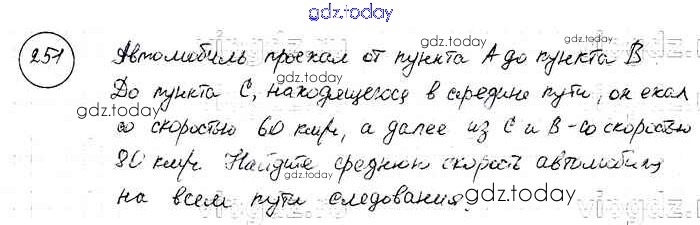 gdz.today
251 Автомобиль проехал от пункта А до пункта В
gdz.today
До пункта С, находящегося в середине пути, он ехал
gdz.today
со скоростью 60 км/ч, а далее из С и В - со скоростью
gdz.today
80 км/ч. Найдите среднюю скорость автомобиля
на всем пути следования.
gdz.today